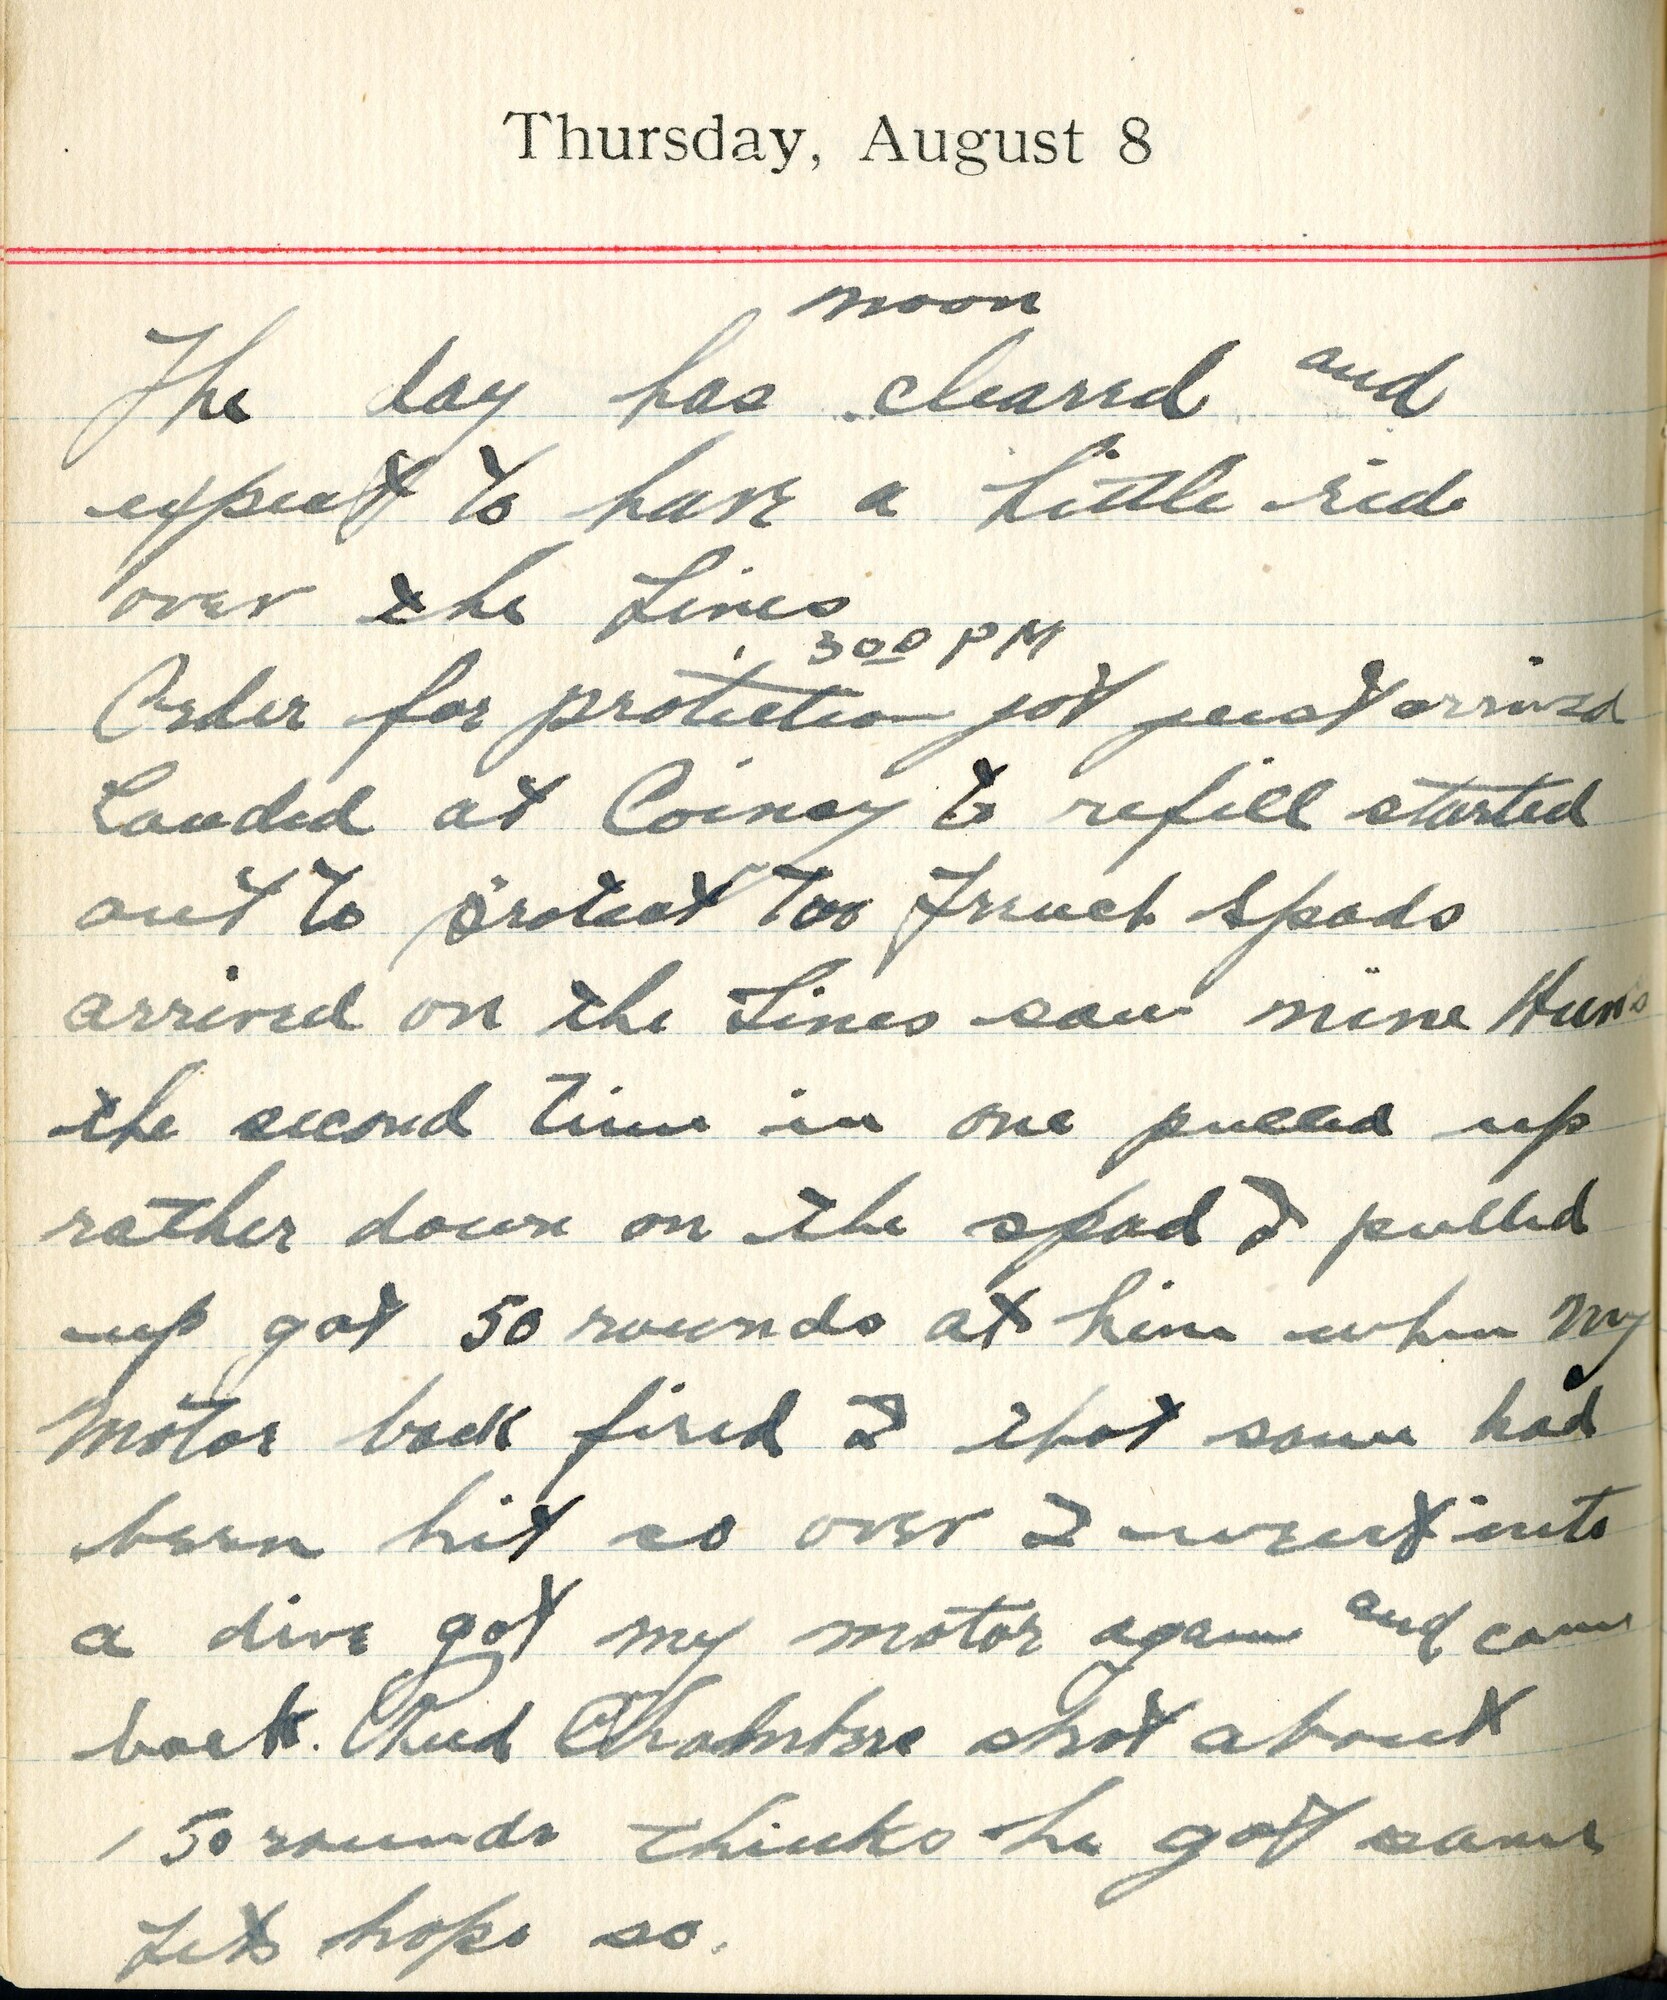 Thursday, August 8
noon
The day has cleared and
expect to have a little ride
over the Lines
300 PM
Order for protection jot just arrived
Landed at Coincy to refill started
out to protect two French Spads
arrived on the Lines saw nine Huns
the second time in one pulled up
rather down on the spad I pulled
up got 50 rounds at him when my
Motor back fired I shot some had
been hit so over I went into
a dive got my motor again and came
back. Reed Chambers shot about
150 rounds thinks he got same
Lets hope so.